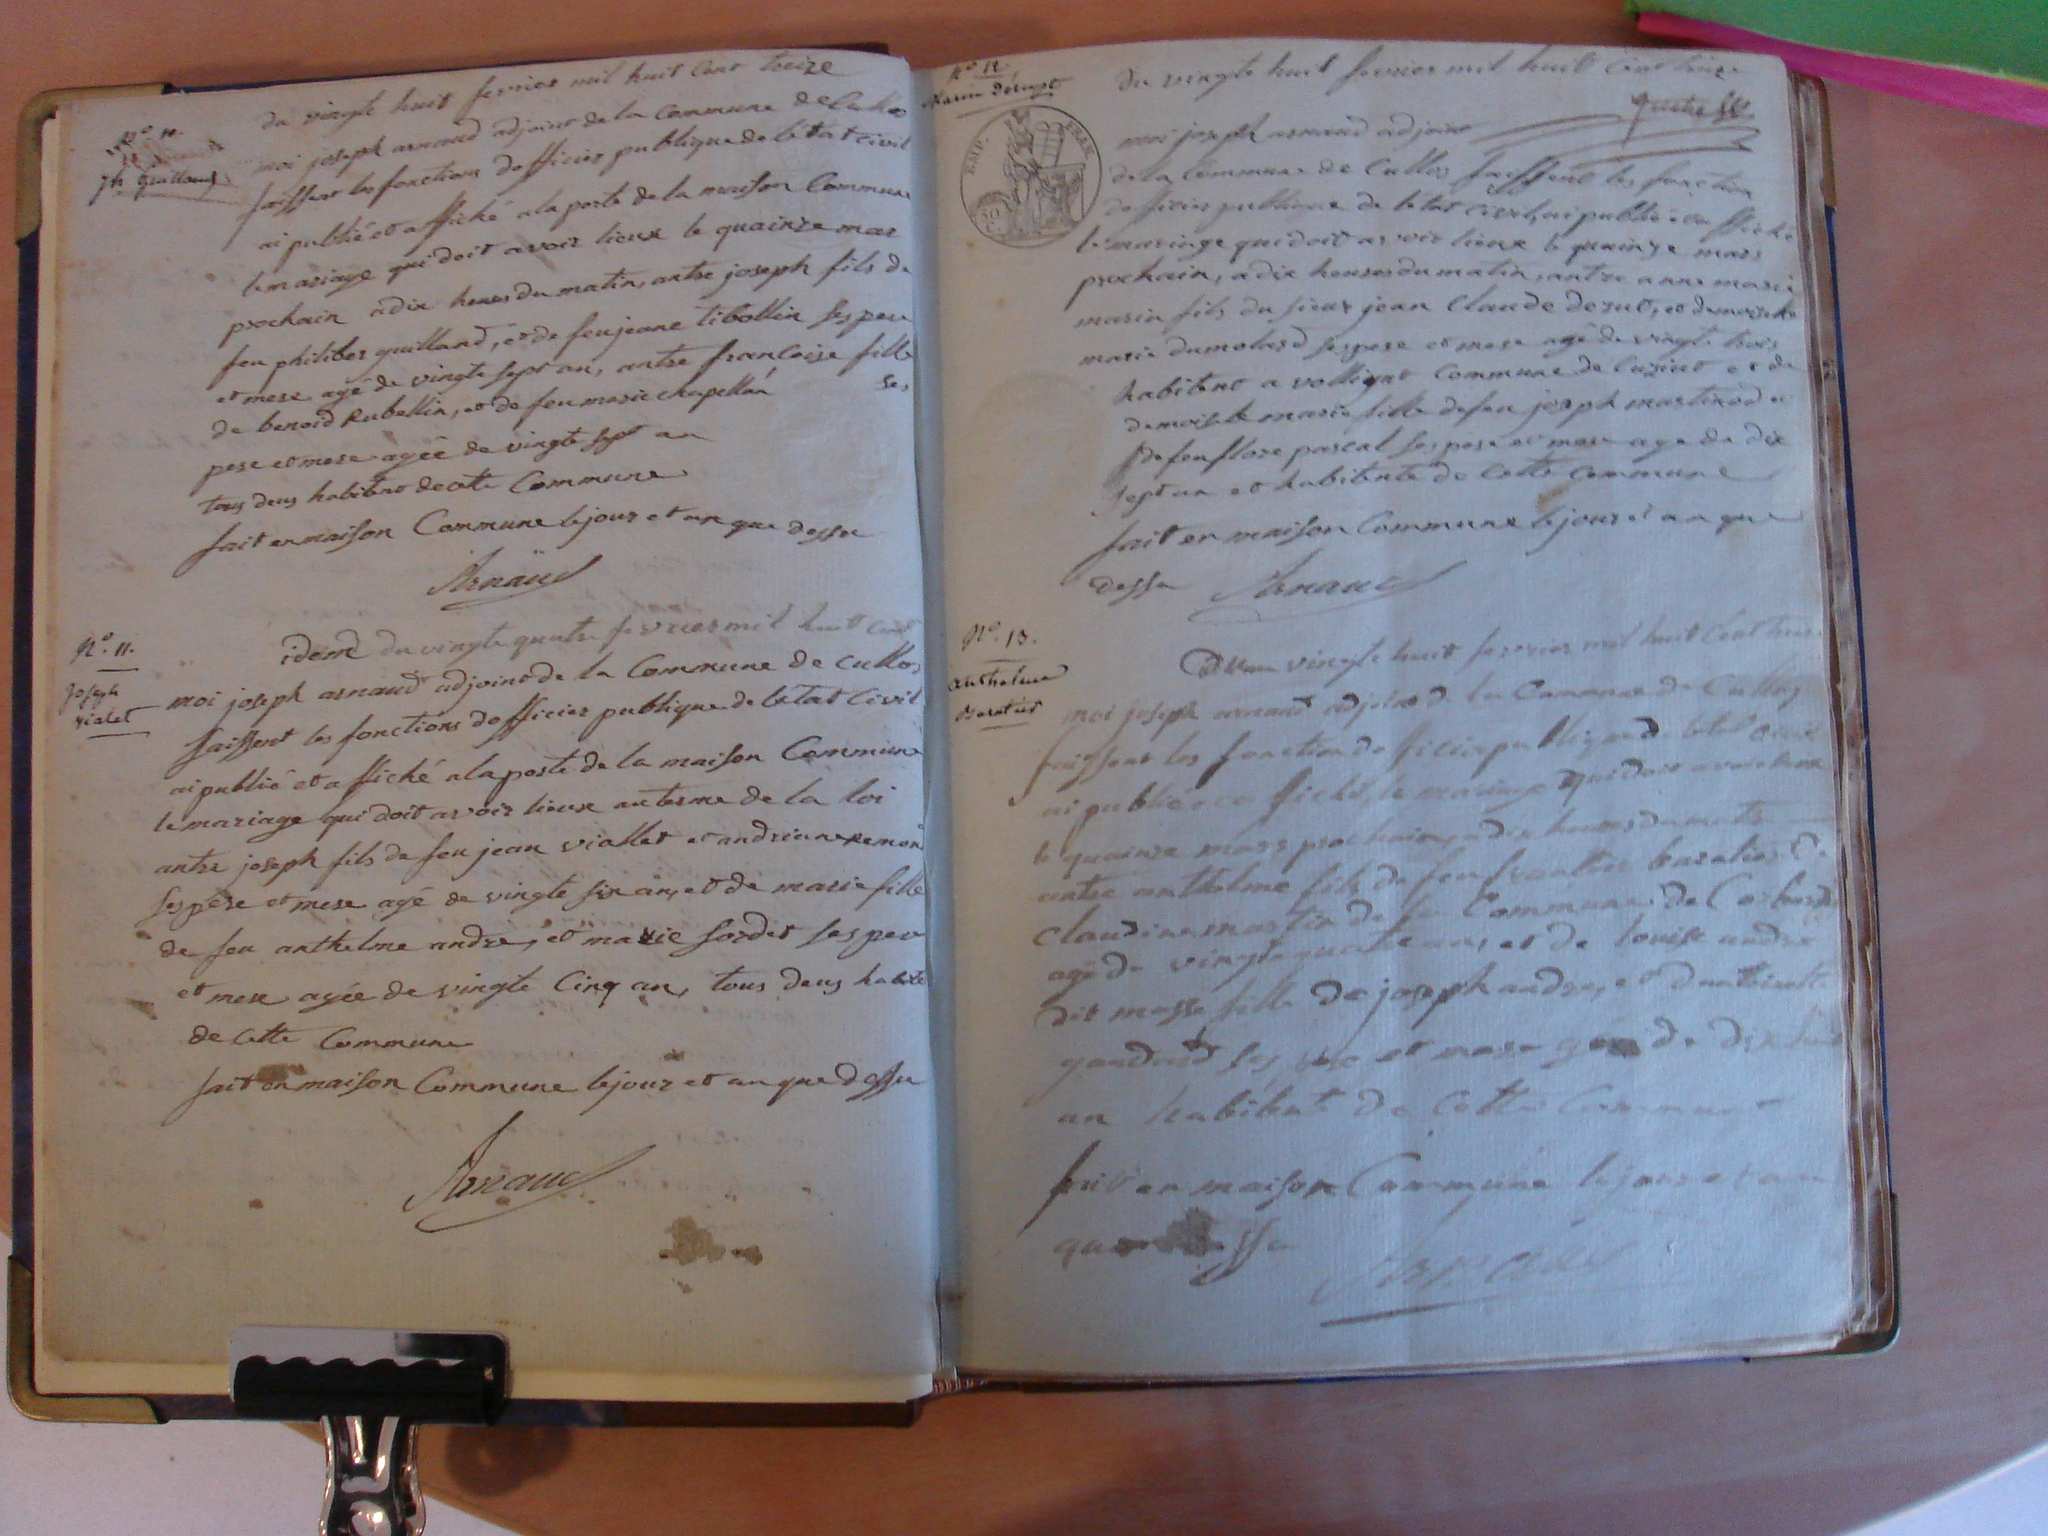 N° 10.
jh guilland
du vingte huit fevrier mil huit cent treize
moi joseph arnaud adjoint de la commune de Culloz
faissent les fonctions dofficier publique de letat civil
ai publié et affiché a la porte de la maison Commune
le mariage qui doit avoir lieux le quainze mar
prochain a dix heures du matin, antre joseph fils de
feu philiber guilland, et de feu jeane tibollin ses pere
et mere agé de vingte sept an, antre francoise fille
de benoid Rubellin, et de feu marie chapellan ses
pere et mere agée de vingte sept an
tous deus habitant de cette Commune
fait en maison Commune le jour et an que dessu
Arnaud
N° 11.
Joseph
vialet
idem du vingte quatre fevrier mil huit cent
moi joseph arnaud adjoint de la Commune de culloz
faissent les fonctions dofficier publique de letat civil
ai publié et affiché a la porte de la maison Commune
le mariage qui doit avoir lieux au terme de la loi
antre joseph fils de feu jean viallet et andriane remon
ses père et mere agé de vingte six an, et de marie fille
de feu anthelme andre, et marie sordet ses pere
et mere agée de vingte Cinq an, tous deus habite
de Cette Commune
fait en maison Commune le jour et an que dessu
Arnaud
N° 12.
Marin Dérupt
EMP. FRAN.
50
C.
du vingte huit fevrier mil huit cent treize
moi joseph arnaud adjoint
de la Commune de Culloz faissent les fonction
dofficier publique de letat civil, ai publié et affiché
le mariage qui doit avoir lieux le quainze mars
prochain, a dix heures du matin, antre anne marie
marin fils du sieur jean Claude derut, et demoiselle
marie dumolard ses pere et mere agé de vingte trois
habitent a vollignat Commune de Cuzieu et de
demoiselle marie fille de feu joseph martinod et
de feu flore pascal ses pere et mere age de dix
sept an et habitente de Cette Commune
fait en maison Commune le jour et an que
dessu Arnaud
N° 13.
anthelme
Baratier
Du vingte huit fevrier mil huit Cent treize
moi joseph arnaud adjoint de la Commune de Culloz
faissent les fonction dofficier publique de letat Civil
ai publié et affiché, le mariage qui doit avoir lieux
le quainze mars prochain, a dix heures du matin
antre anthelme fils de feu baratier de
Claudine martin de la Commune de Corbonod
agé de vingte quatre ans, et de louise andré
dit masse fille De joseph andre, et dantoinette
ses pere et mere de dix huit
an habitant de Cette Commune
fait en maison Commune le jour et an
que dessu
Arnaud